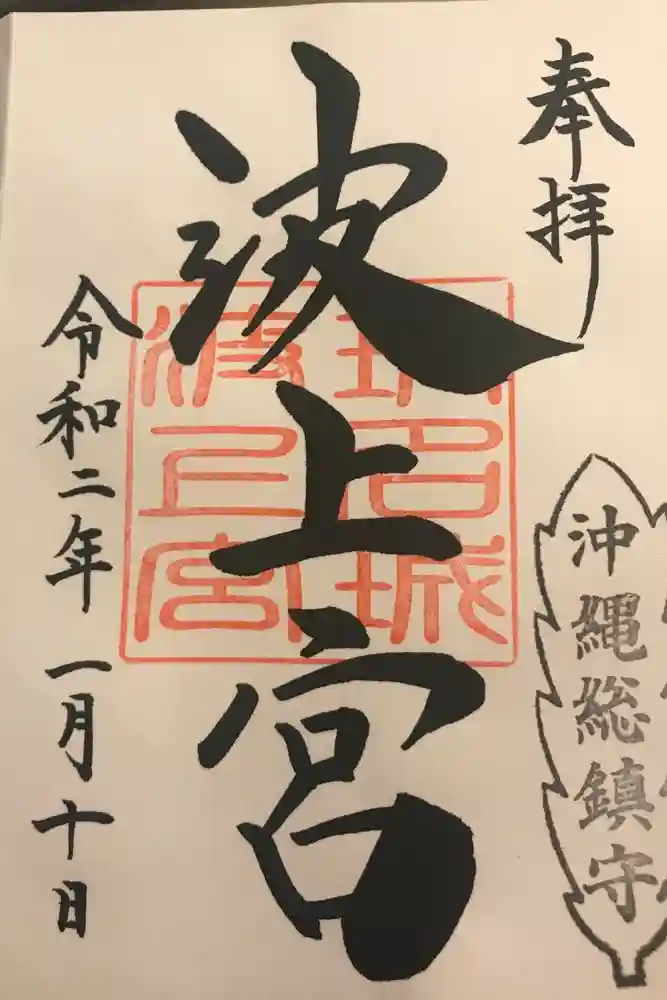 奉拝
沖縄総鎮守
波上宮
琉球城
波上宮
令和二年一月十日